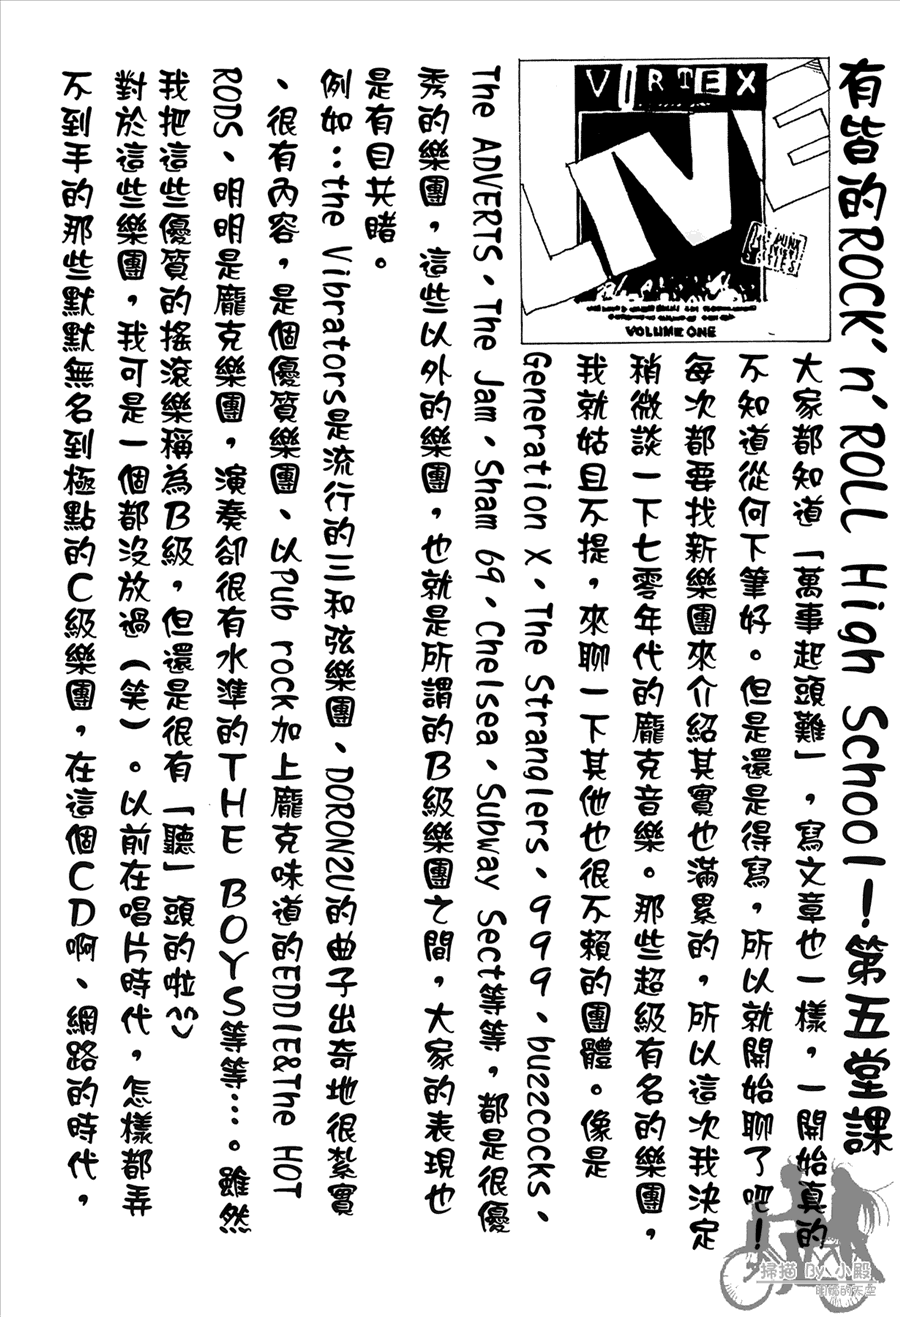 有皆的ROCK'n'ROLL High School！第五堂課
VORTEX
LIVE
VOLUME ONE
大家都知道「萬事起頭難」，寫文章也一樣，一開始真的
不知道從何下筆好。但是還是得寫，所以就開始聊了吧！
每次都要找新樂團來介紹其實也滿累的，所以這次我決定
稍微談一下七零年代的龐克音樂。那些超級有名的樂團，
我就姑且不提，來聊一下其他也很不賴的團體。像是
Generation X、The Stranglers、999、buzzcocks、
The ADVERTS、The Jam、Sham 69、Chelsea、Subway Sect等等，都是很優
秀的樂團，這些以外的樂團，也就是所謂的B級樂團之間，大家的表現也
是有目共睹。
例如：the Vibrators是流行的三和弦樂團、DORONZU的曲子出奇地很紮實
、很有內容，是個優質樂團、以Pub rock加上龐克味道的EDDIE&The HOT
RODS、明明是龐克樂團，演奏卻很有水準的THE BOYS等等…。雖然
我把這些優質的搖滾樂稱為B級，但還是很有「聽」頭的啦^^
對於這些樂團，我可是一個都沒放過（笑）。以前在唱片時代，怎樣都弄
不到手的那些默默無名到極點的C級樂團，在這個CD啊、網路的時代，
掃描 By 小殿